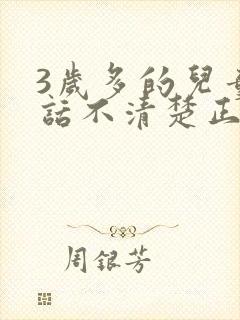 3歲多的兒
話不清楚正
周銀芳